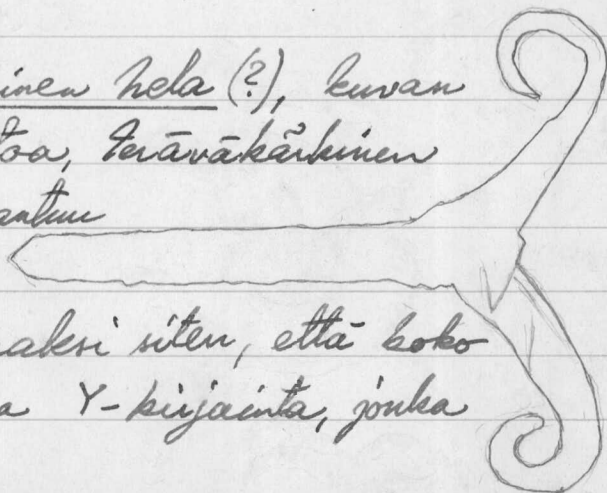 inen hela (?), kuvan
toa, teräväkärkinen
antuu
aksi siten, että koko
a Y-kirjainta, jonka